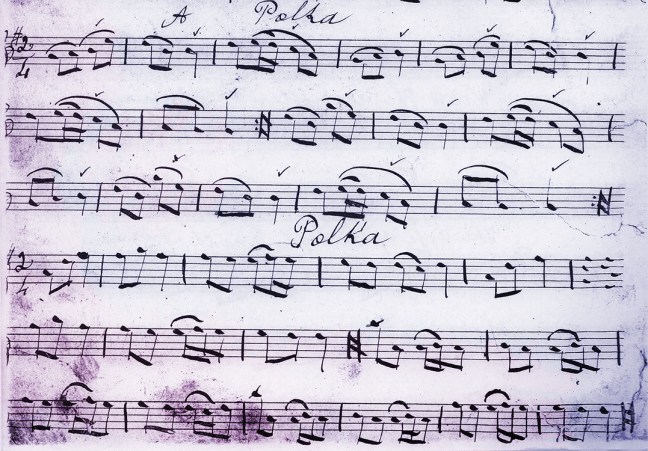 A Polka
2
4
Polka
2
4